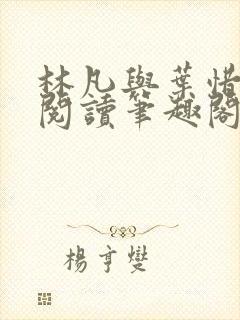 林凡與葉惜
閱讀筆趣閣
楊亨燮